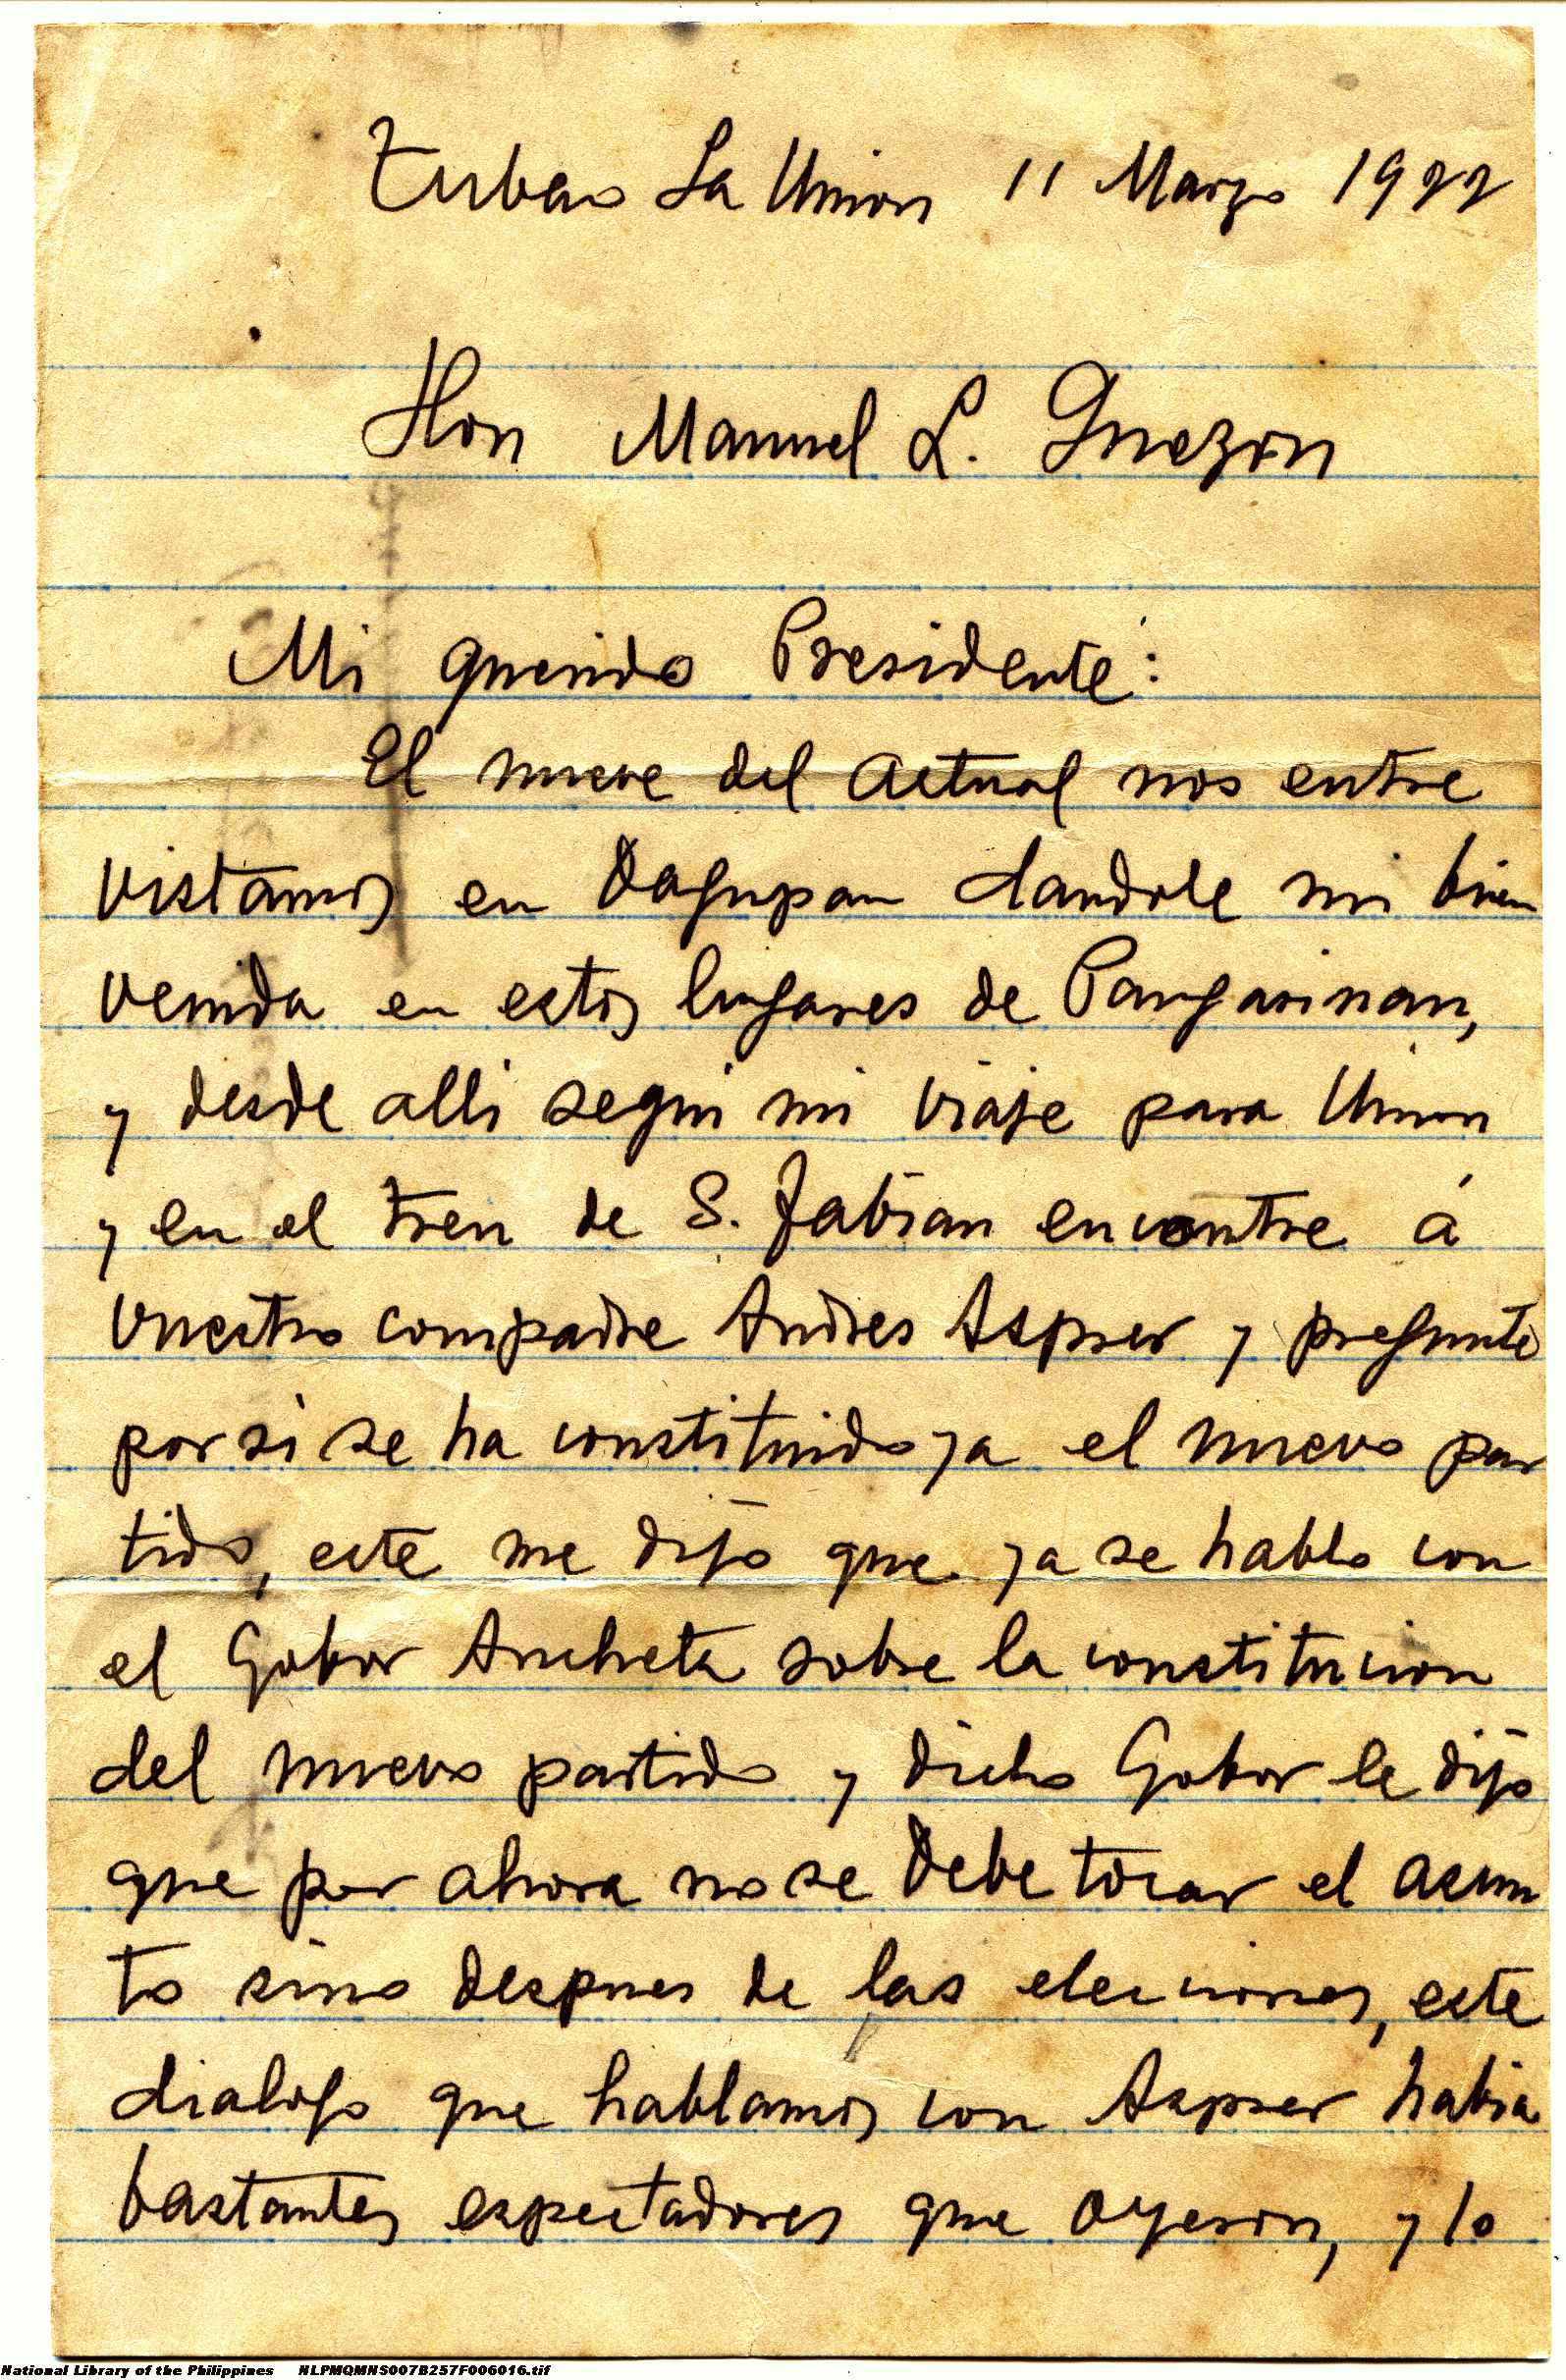 Tubao La Union 11 Marzo 1922
Hon Manuel L. Quezon
Mi querido Presidente:
El nueve del actual nos entre
vistamos en Dagupan dandole mi bien
venida en estos lugares de Pangasinan,
y desde alli segui mi viaje para Union
y en el tren de S. Fabian encontre á
vuestro compadre Andres Asprer y pregunté
por si se ha constituido ya el nuevo par
tido, este me dijo que ya se hablo con
el Gobor Ancheta sobre la constitucion
del nuevo partido y dicho Gobor le dijo
que por ahora no se debe tocar el asun
to sino despues de las elecciones, este
dialogo que hablamos con Asprer habia
bastantes espectadores que oyeron, y lo
National Library of the Philippines NLPMQMNS007B257F006016.tif